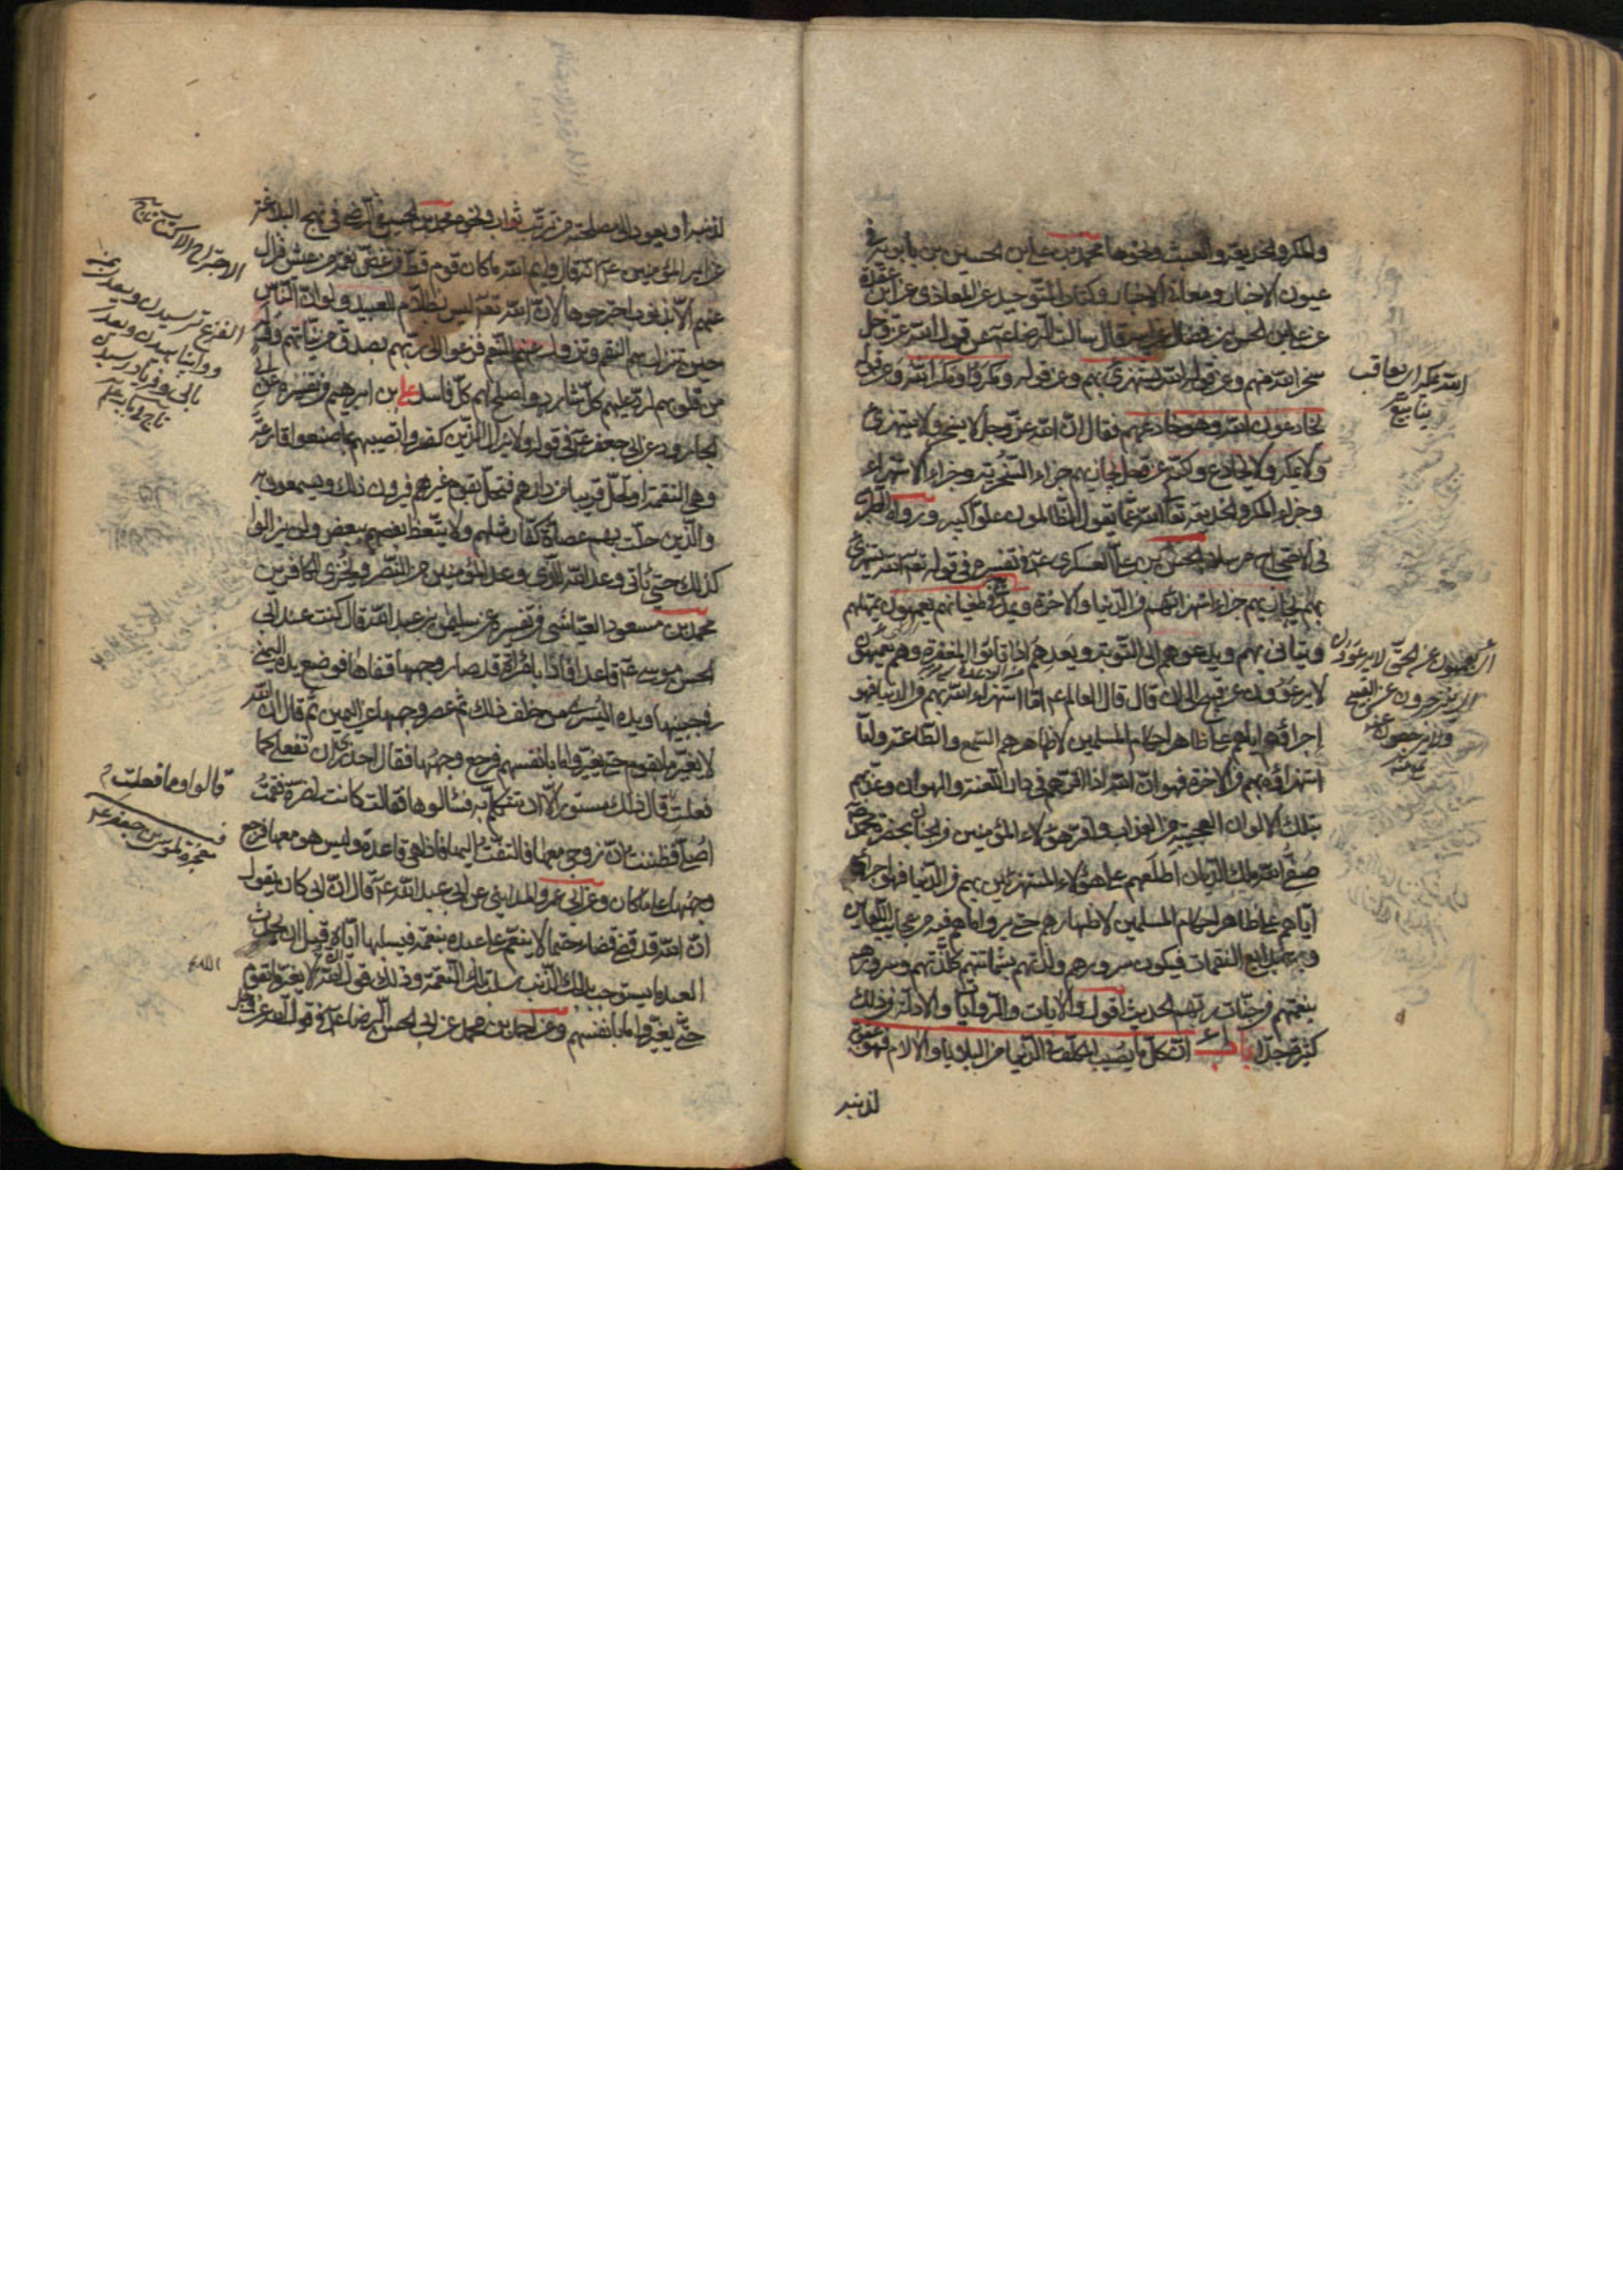 والمكر والخديعة والعبث ونحوها محمد بن علي بن الحسين بن بابويه في
عيون الاخبار ومعاني الاخبار وكتاب التوحيد عن المعاذي عن ابن عقدة
عن علي بن الحسن بن فضال عن ابيه قال سالت الرضا عه عن قول الله عز وجل
سخر الله منهم وعن قوله الله يستهزئ بهم وعن قوله ومكروا ومكر الله وعن قوله
يخادعون الله وهو خادعهم فقال ان الله عز وجل لا يسخر ولا يستهزئ
ولا يمكر ولا يخادع ولكنه عز وجل يجازيهم جزاء السخرية وجزاء الاستهزاء
وجزاء المكر والخديعة تعالى الله عما يقول الظالمون علوا كبيرا ورواه الطبرسي
في الاحتجاج مرسلا الحسن بن علي العسكري عه في تفسيره في قوله تعه الله يستهزئ
بهم يجازيهم جزاء استهزائهم في الدنيا والاخرة ويمدهم في طغيانهم يعمهون يمهلهم
ويتأنى بهم ويدعوهم الى التوبة ويعدهم اذا تابوا المغفرة وهم يعمهون
لا يرعوون عن قبيح الى ان قال قال العالم عه اما استهزاء الله بهم في الدنيا فهو
إجراؤه اياهم على ظاهر احكام المسلمين لاظهارهم السمع والطاعة واما
استهزاؤه بهم في الاخرة فهو ان الله اذا اقرهم في دار اللعنة والهوان وعذبهم
بتلك الالوان العجيبة من العذاب واقر هؤلاء المؤمنين في الجنان بحضرة محمد
صفي الله الملك الديان اطلعهم على هؤلاء المستهزئين بهم في الدنيا فهو اجراؤه
اياهم على ظاهر احكام المسلمين لاظهارهم حتى يروا ما هم فيه من عجايب اللعاين
وبدايع النقمات فيكون سرورهم ولذتهم بشماتتهم كلذتهم وسرورهم
بنعمتهم في جنات ربهم الحديث اقول والايات والروايات والادلة في ذلك
كثيرة جدا باب ان كل ما يصيب المكلف في الدنيا من البلايا والالام فهو عقوبة
لذنبه
الله يمكر اي يعاقب
ينابيع
اي يعمهون عن الحق لا يرعوون
اي لا ينزجرون عن القبيح
ولا يرجعون عنه
لذنبه او يعود الى مصلحته من ترتب ثواب ونحوه محمد بن الحسين الرضي في نهج البلاغة
عن امير المؤمنين عه انه قال وايم الله ما كان قوم قط في غض نعمة من عيش فزال
عنهم الا بذنوب اجترحوها لان الله تعه ليس بظلام للعبيد ولو ان الناس
حين تنزل بهم النقم وتزول عنهم النعم فزعوا الى ربهم بصدق من نياتهم ووله
من قلوبهم لرد عليهم كل شارد واصلح لهم كل فاسد علي بن ابرهيم في تفسيره عن ابي
الجارود عن ابي جعفر عه في قوله ولا يزال الذين كفروا تصيبهم بما صنعوا قارعة
وهي النقمة او تحل قريبا من دارهم فتحل بقوم غيرهم فيرون ذلك ويسمعون به
والذين حلت بهم عصاة كفار مثلهم ولا يتعظ بعضهم ببعض ولن يزالوا
كذلك حتى يأتي وعد الله الذي وعد المؤمنين من النصر ويخزي الكافرين
محمد بن مسعود العياشي في تفسيره عن سليمن بن عبد الله قال كنت عند ابي
الحسن موسى عه قاعدا فاذا بامرأة قد صار وجهها قفاها فوضع يده اليمنى
في جبينها ويده اليسرى من خلف ذلك ثم عصر وجهها عن اليمين ثم قال ان الله
لا يغير ما بقوم حتى يغيروا ما بانفسهم فرجع وجهها فقال احذري ان تفعلي كما
فعلت قال ذلك مستور الا ان تتكلم به فسألوها فقالت كانت لي ضرة فقمت
اصلي فظننت ان زوجي معها فالتفت اليها فاذا هي قاعدة وليس هو معها فرجع
وجهها على ما كان وعن ابي عمرو المدايني عن ابي عبد الله عه قال ان ابي كان يقول
ان الله قد قضى قضاء حتما لا ينعم على عبده بنعمة فيسلبها اياه قبل ان يحدث
العبد ما يستوجب بذلك الذنب سلب تلك النعمة وذلك قول الله ان الله لا يغير ما بقوم
حتى يغيروا ما بانفسهم وعن احمد بن محمد عن ابي الحسن الرضا عه في قول الله عز وجل
الاجتراح الاكتساب تاج
الفزع ترسيدن ويعدى بمن
وپناهيدن ويعدى
بالى وفرياد رسيدن
تاج
قالوا وما فعلت
معجزة لموسى بن جعفر عه